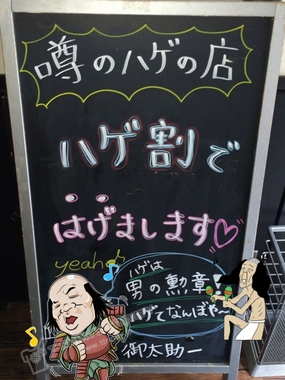 噂のハゲの店
ハゲ割で
はげまします♡
yeah♪
ハゲは
男の勲章!
ハゲてなんぼや〜
御太助一